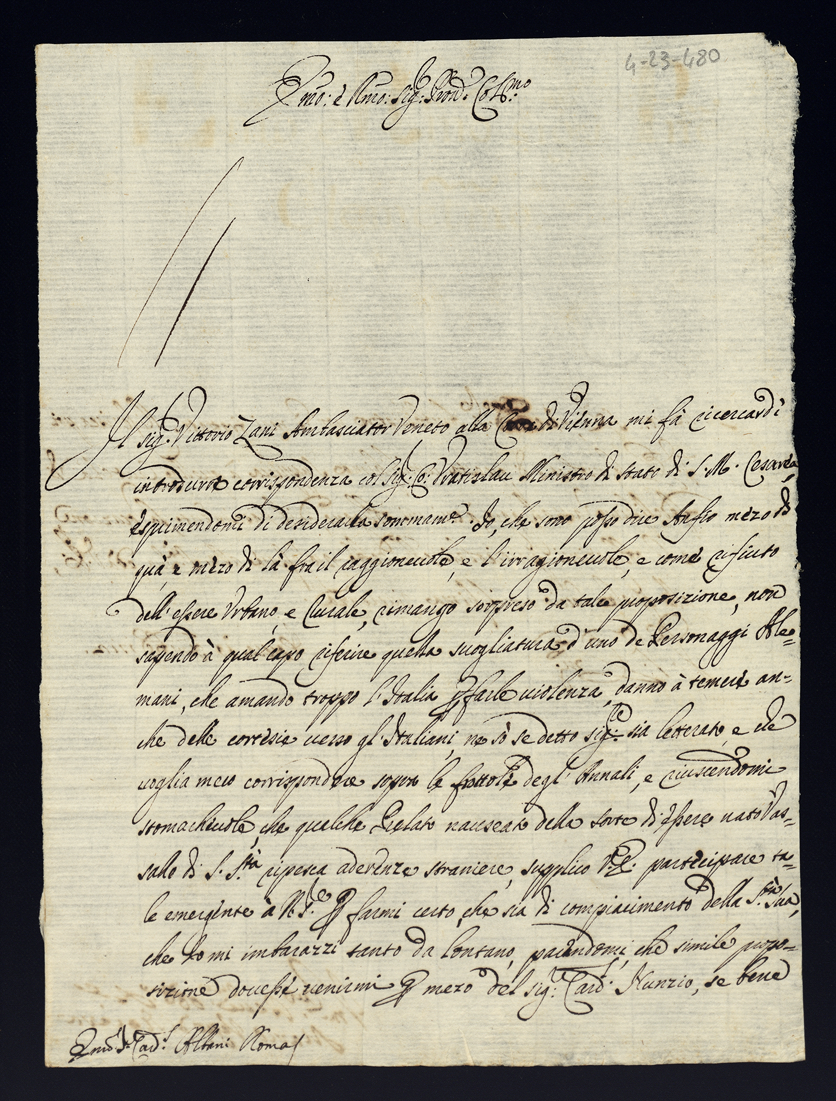 4-23-480
Emo: è Rmo: Sig: Pron: Colmo
Il Sigr. Vittorio Zani Ambasciator Veneto alla Corte di Vienna mi fà ricercar di
introdurre corrispondenza col Sig: Co: Vratislau Ministro di stato di S. M. Cesarea
esprimendomi di desiderarla sommamte. Io, che sono posso dire stesso mezo di
quà e mezo di là frà il raggioneuole, e l'irragioneuole, e come rifiuto
dell'essere Urbano, e Rurale, rimango sorpreso da tale proposizione, non
sapendo à qual capo riferire questa suogliatura d'uno de Personaggi Ale=
mani, che amando troppo l'Italia per farle violenza, danno à temere an=
che delle cortesie verso gl'Italiani, ne sò se detto Sigre. sia letterato, e che
voglia meco corrispondere sopra le degl'Annali, e riuscendomi
stomacheuole, che qualche Prelato nauseato della sorte di essere nato Vas=
sallo di S. Stà ripesca aderenze straniere, supplico V. E. partecipare ta=
le emergente à N. Sre. per farmi certo, che sia di compiacimento della Stà Sua,
che Io mi imbarazzi tanto da lontano, parendomi, che simile propo=
sizione douesse venirmi per mezo del Sig: Card: Nunzio, se bene
Emo: Sr: Cardl. Albani Roma